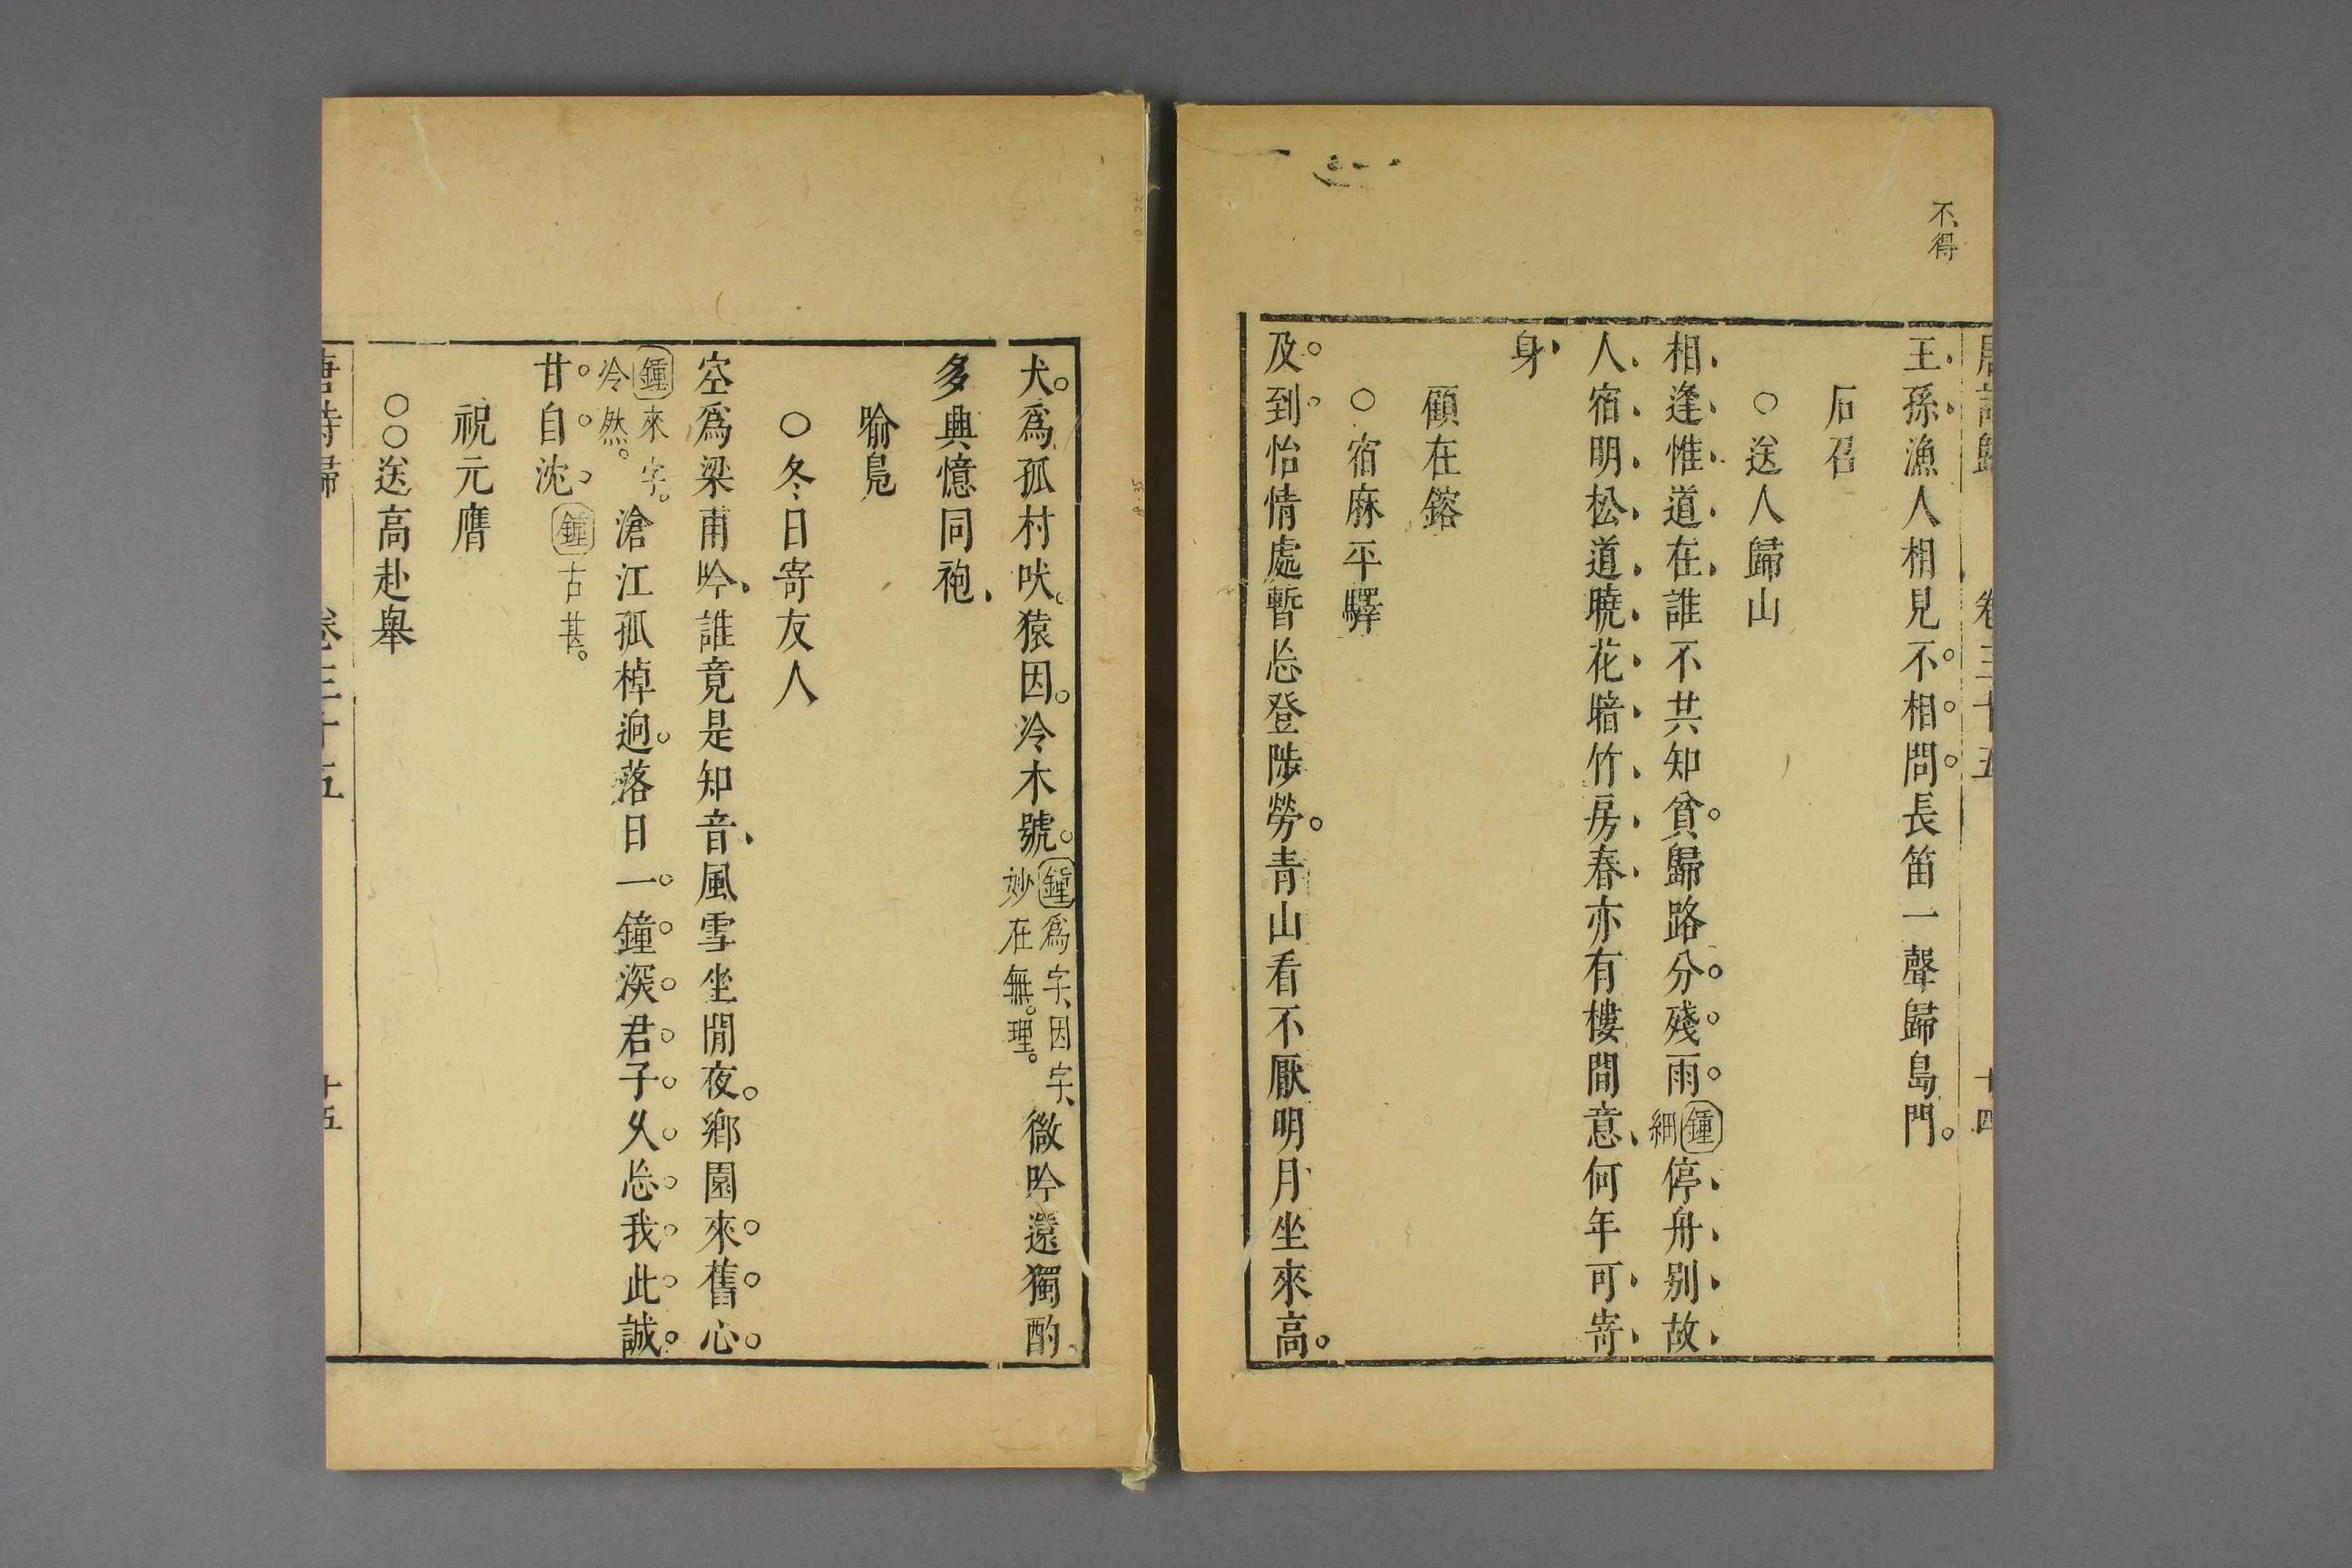 不得
唐詩歸 卷三十五 十四
王孫漁人相見不相問長笛一聲歸島門
后召
○送人歸山
相逢惟道在誰不共知貧歸路分殘雨鍾細停舟别故
人宿明松道曉花暗竹房春亦有樓間意何年可寄
身
顧在鎔
○宿麻平驛
及到怡情處暫忘登陟勞青山看不厭明月坐來高
犬爲孤村吠猿因冷木號鍾爲字因字妙在無理微吟還獨酌
多興憶同袍
喻鳧
○冬日寄友人
空爲梁甫吟誰竟是知音風雪坐閒夜鄉園來舊心
鍾來字冷然滄江孤棹迥落日一鐘深君子久忘我此誠
甘自沈鍾古甚
祝元膺
○○送高赴舉
唐詩歸 卷三十五 十五